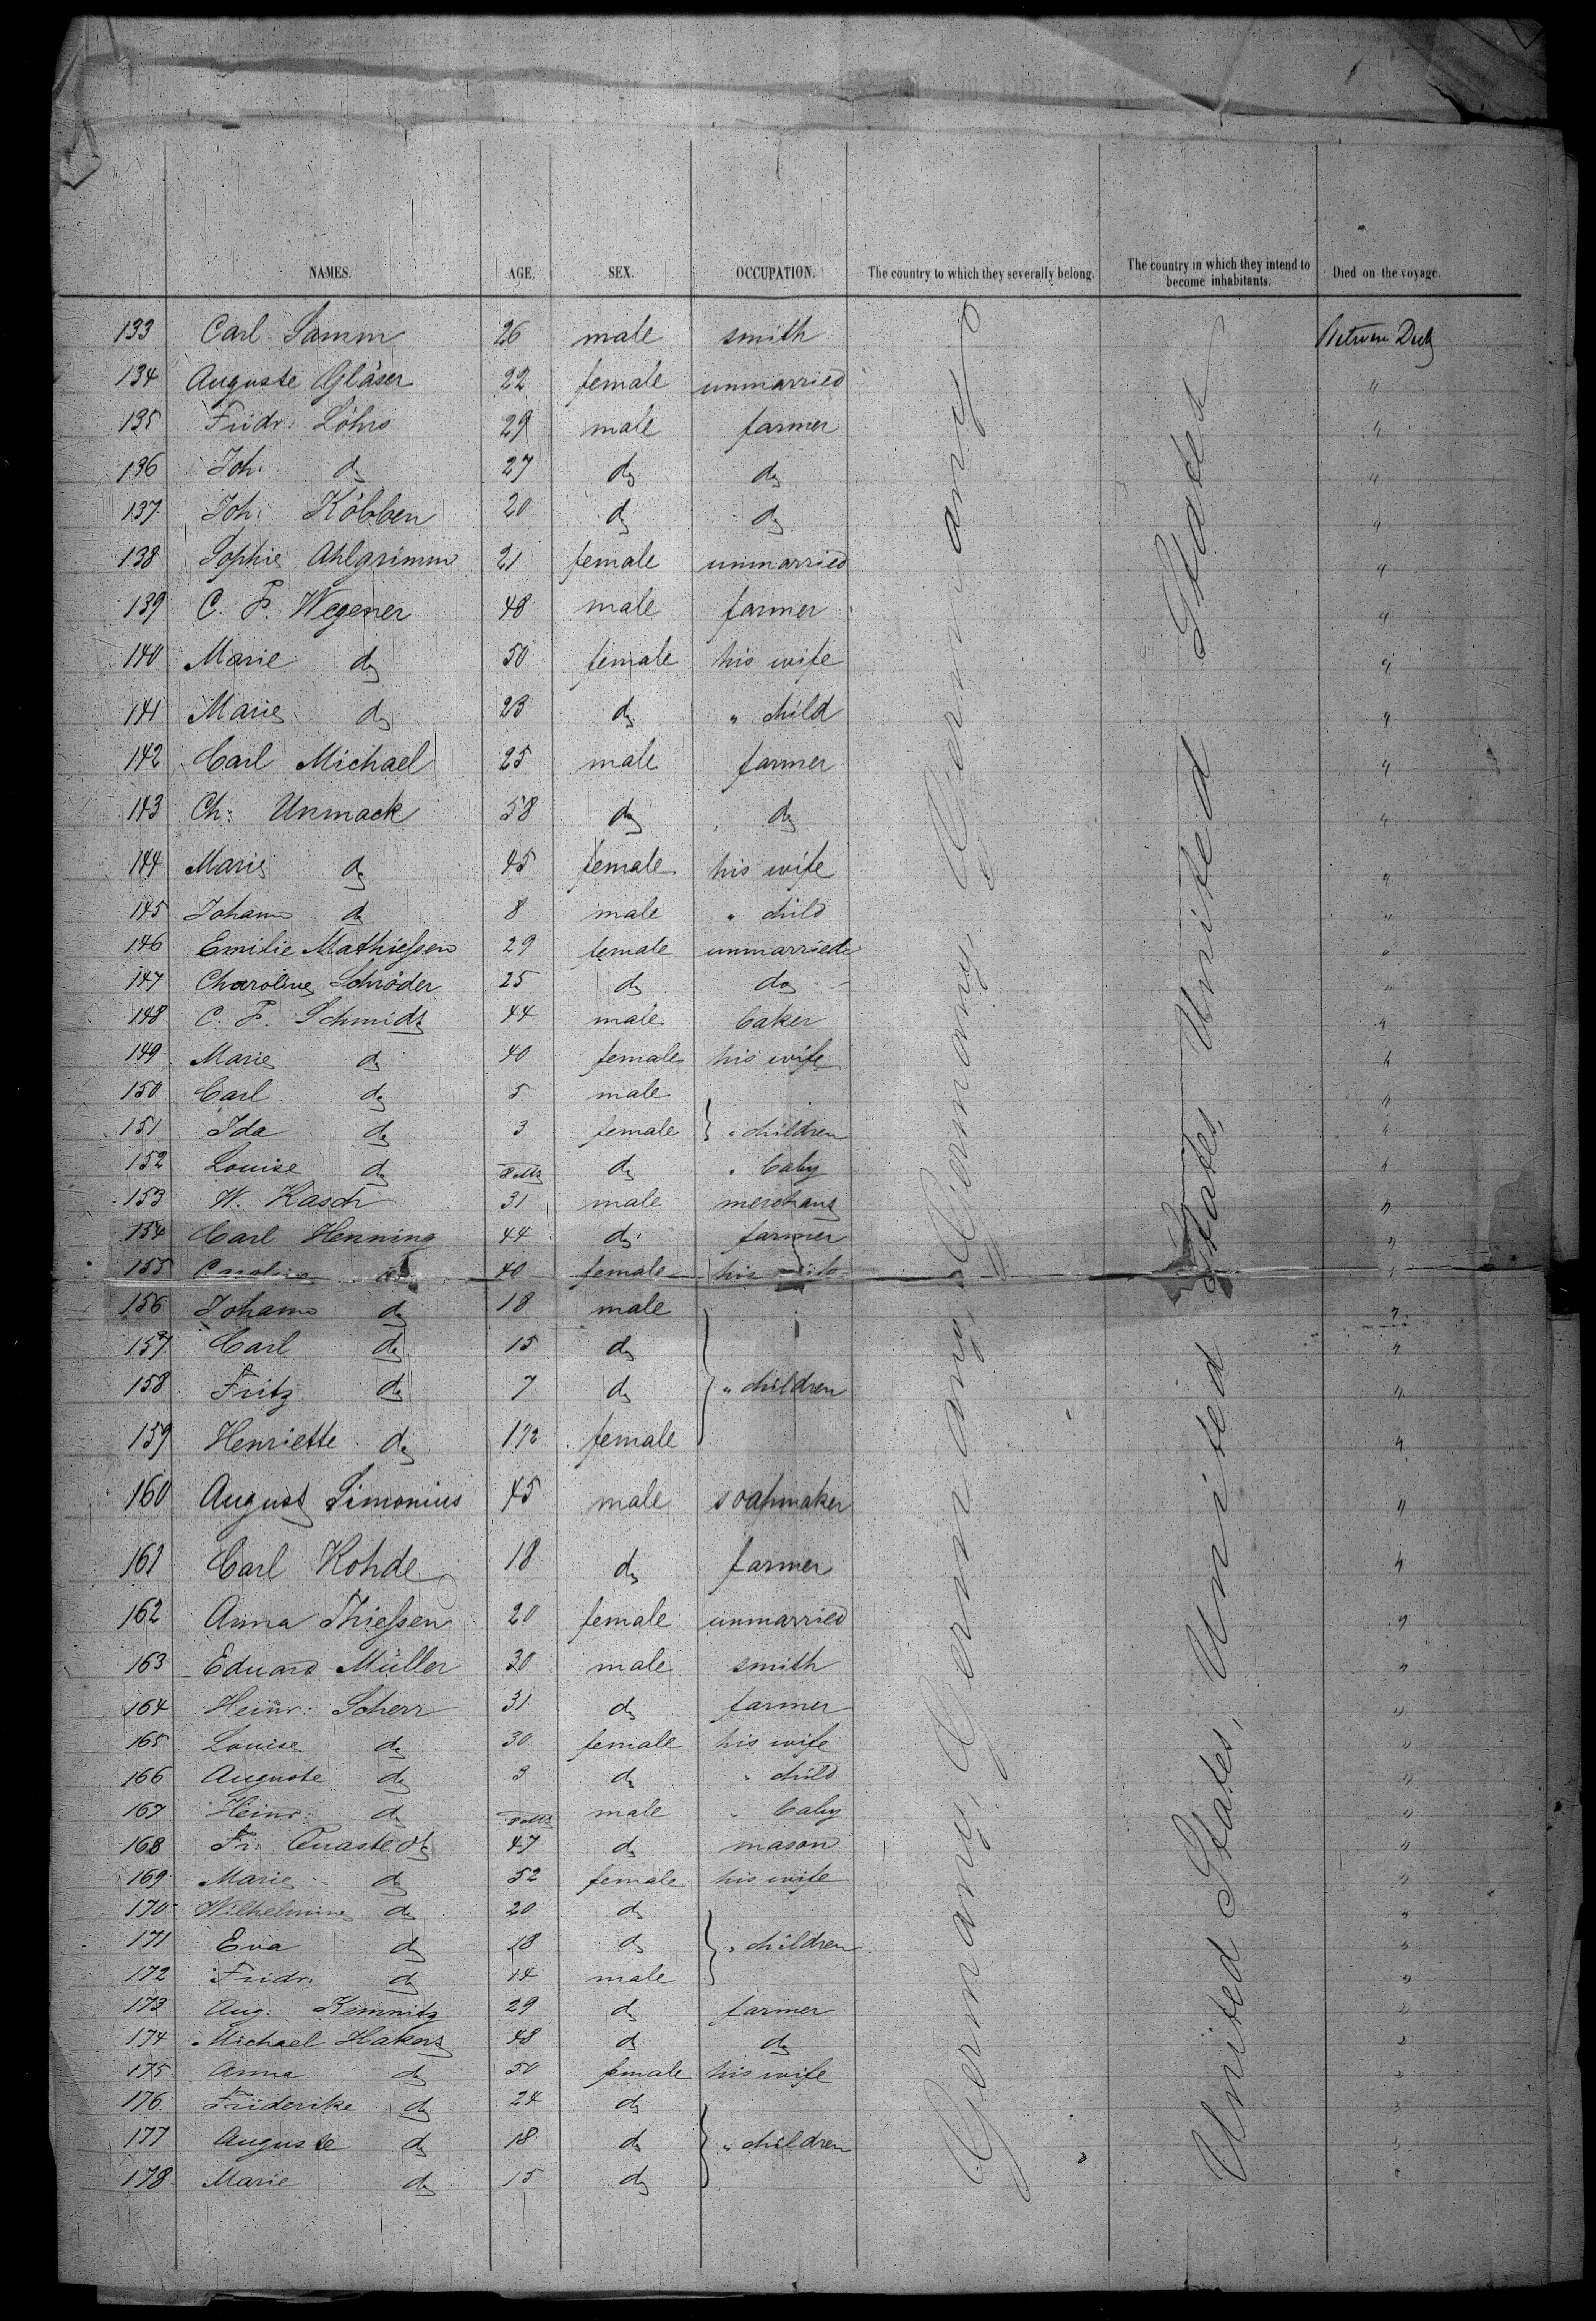 NAMES. AGE. SEX. OCCUPATION. The country to which they severally belong. The country in which they intend to become inhabitants. Died on the voyage.
133 Carl Samm 26 male smith Between Deck
134 Auguste Gläser 22 female unmarried "
135 Fridr: Löhrs 29 male farmer "
136 Joh: do 27 do do "
137 Joh: Köbben 20 do do "
138 Sophie Ahlgrimm 21 female unmarried "
139 C. F. Wegener 48 male farmer "
140 Marie do 50 female his wife "
141 Marie do 23 do " child "
142 Carl Michael 25 male farmer "
143 Ch: Unmack 58 do do "
144 Marie do 45 female his wife "
145 Johann do 8 male " child "
146 Emilie Mathieſsen 29 female unmarried "
147 Charoline Schröder 25 do do "
148 C. F. Schmidt 44 male baker "
149 Marie do 40 female his wife "
150 Carl do 5 male "
151 Ida do 3 female } " children "
152 Louise do do " baby "
153 W. Kasch 31 male merchant "
154 Carl Henning 44 do farmer "
155 Caroline do 40 female his wife "
156 Johann do 18 male "
157 Carl do 15 do "
158 Fritz do 7 do } " children "
159 Henriette do female "
160 August Simonius 45 male soapmaker "
161 Carl Rohde 18 do farmer "
162 Anna Thieſsen 20 female unmarried "
163 Eduard Müller 30 male smith "
164 Heinr: Scherr 31 do farmer "
165 Louise do 30 female his wife "
166 Auguste do 3 do " child "
167 Heinr: do male " baby "
168 Fr: Quastedt 47 do mason "
169 Marie do 52 female his wife "
170 Wilhelmine do 20 do "
171 Eva do 18 do } " children "
172 Fridr: do 14 male "
173 Aug: Kemnitz 29 do farmer "
174 Michael Hakert 48 do do "
175 Anna do 50 female his wife "
176 Friderike do 24 do "
177 Auguste do 18 do } " children "
178 Marie do 15 do "
Germany, Germany, Germany, Germany
United States, United States, United States